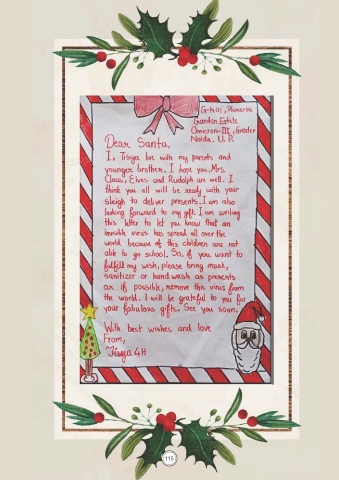 G-1401, Plumeria
Garden Estate
Omicron-III, Greater
Noida, U.P.
Dear Santa,
I, Tisya live with my parents and
younger brother. I hope you, Mrs.
Claus, Elves and Rudolph are well. I
think you all will be ready with your
sleigh to deliver presents. I am also
looking forward to my gift. I am writing
this letter to let you know that an
invisible virus has spread all over the
world, because of this children are not
able to go school. So, if you want to
fulfill my wish, please bring mask,
sanitizer or hand wash as presents
or if possible, remove this virus from
the world. I will be grateful to you for
your fabulous gifts. See you soon.
With best wishes and love
From,
Tisya 4H
115